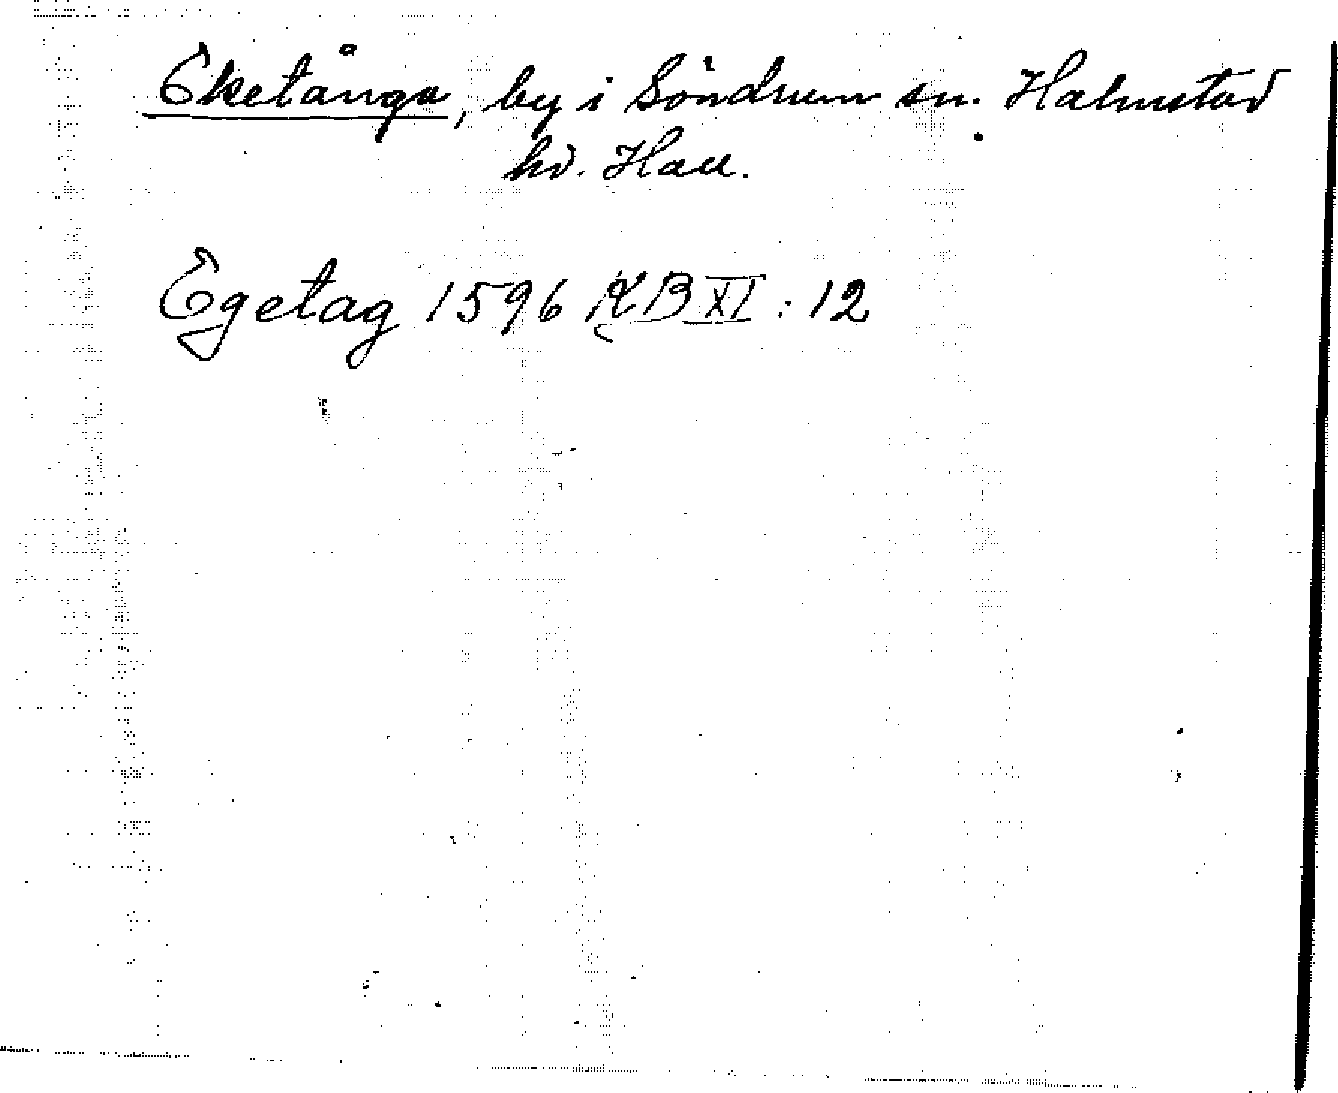 Eketånga, by i Söndrum sn. Halmstad
hd. Hall.
Egetag 1596 KB XI: 12